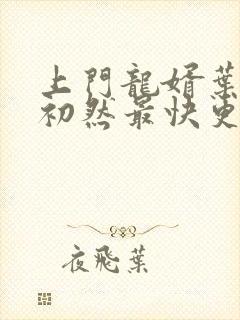 上門龍婿葉
初然最快更
夜飛葉